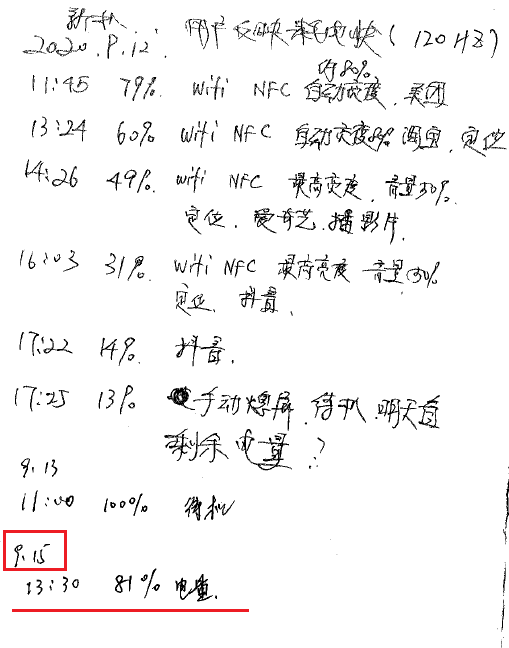 新机
2020.9.12 用户反映耗电快(120HZ)
约80%
11:45 79% Wifi NFC 自动亮度 美团
13:24 60% Wifi NFC 自动亮度 淘宝 定位
14:26 49% Wifi NFC 最高亮度 音量30%
定位 爱奇艺 播影片
16:03 31% Wifi NFC 最高亮度 音量30%
定位 抖音
17:22 14% 抖音
17:25 13% 手动熄屏 待机 明天看
剩余电量?
9.13
11:00 100% 待机
9.15
13:30 81% 电量